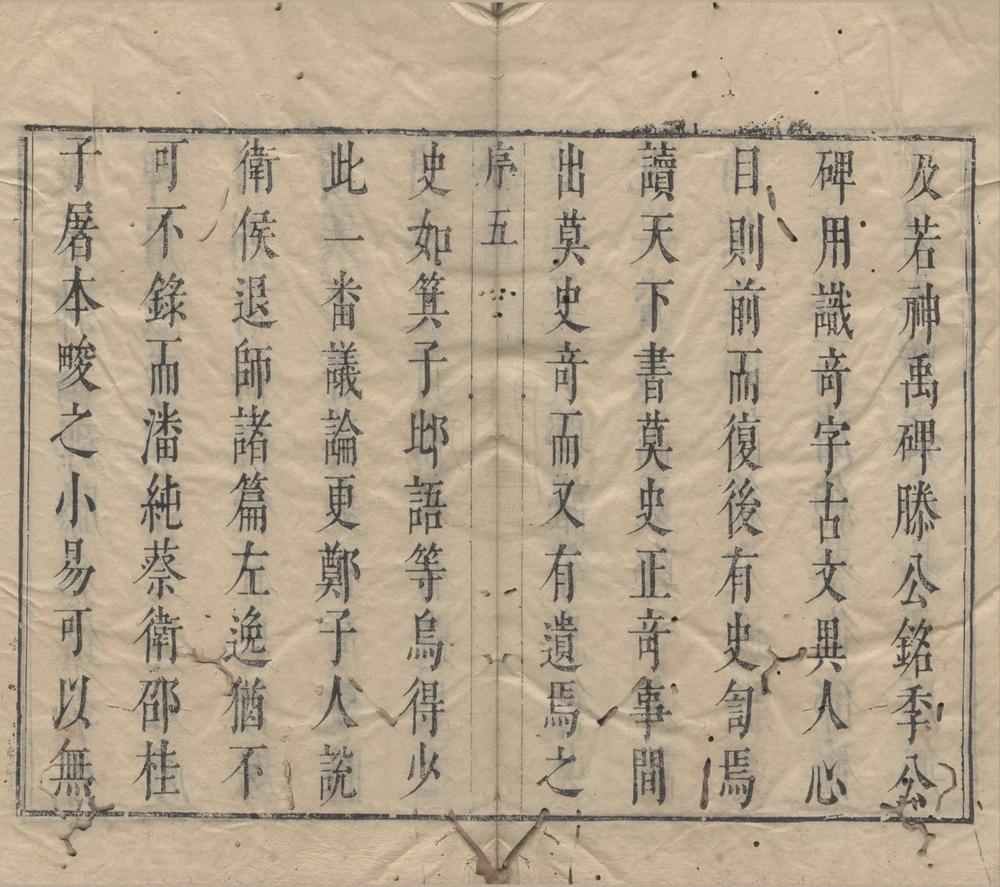 及若神禹碑滕公銘季公
碑用識竒字古文異人心
目則前而復後有史訇焉
讀天下書莫史正竒事間
出莫史竒而又有遺焉之
序 五
史如箕子邶語等烏得少
此一畨議論更鄭子人說
衛侯退師諸篇左逸猶不
可不錄而潘純蔡衛邵桂
子屠本畯之小易可以無